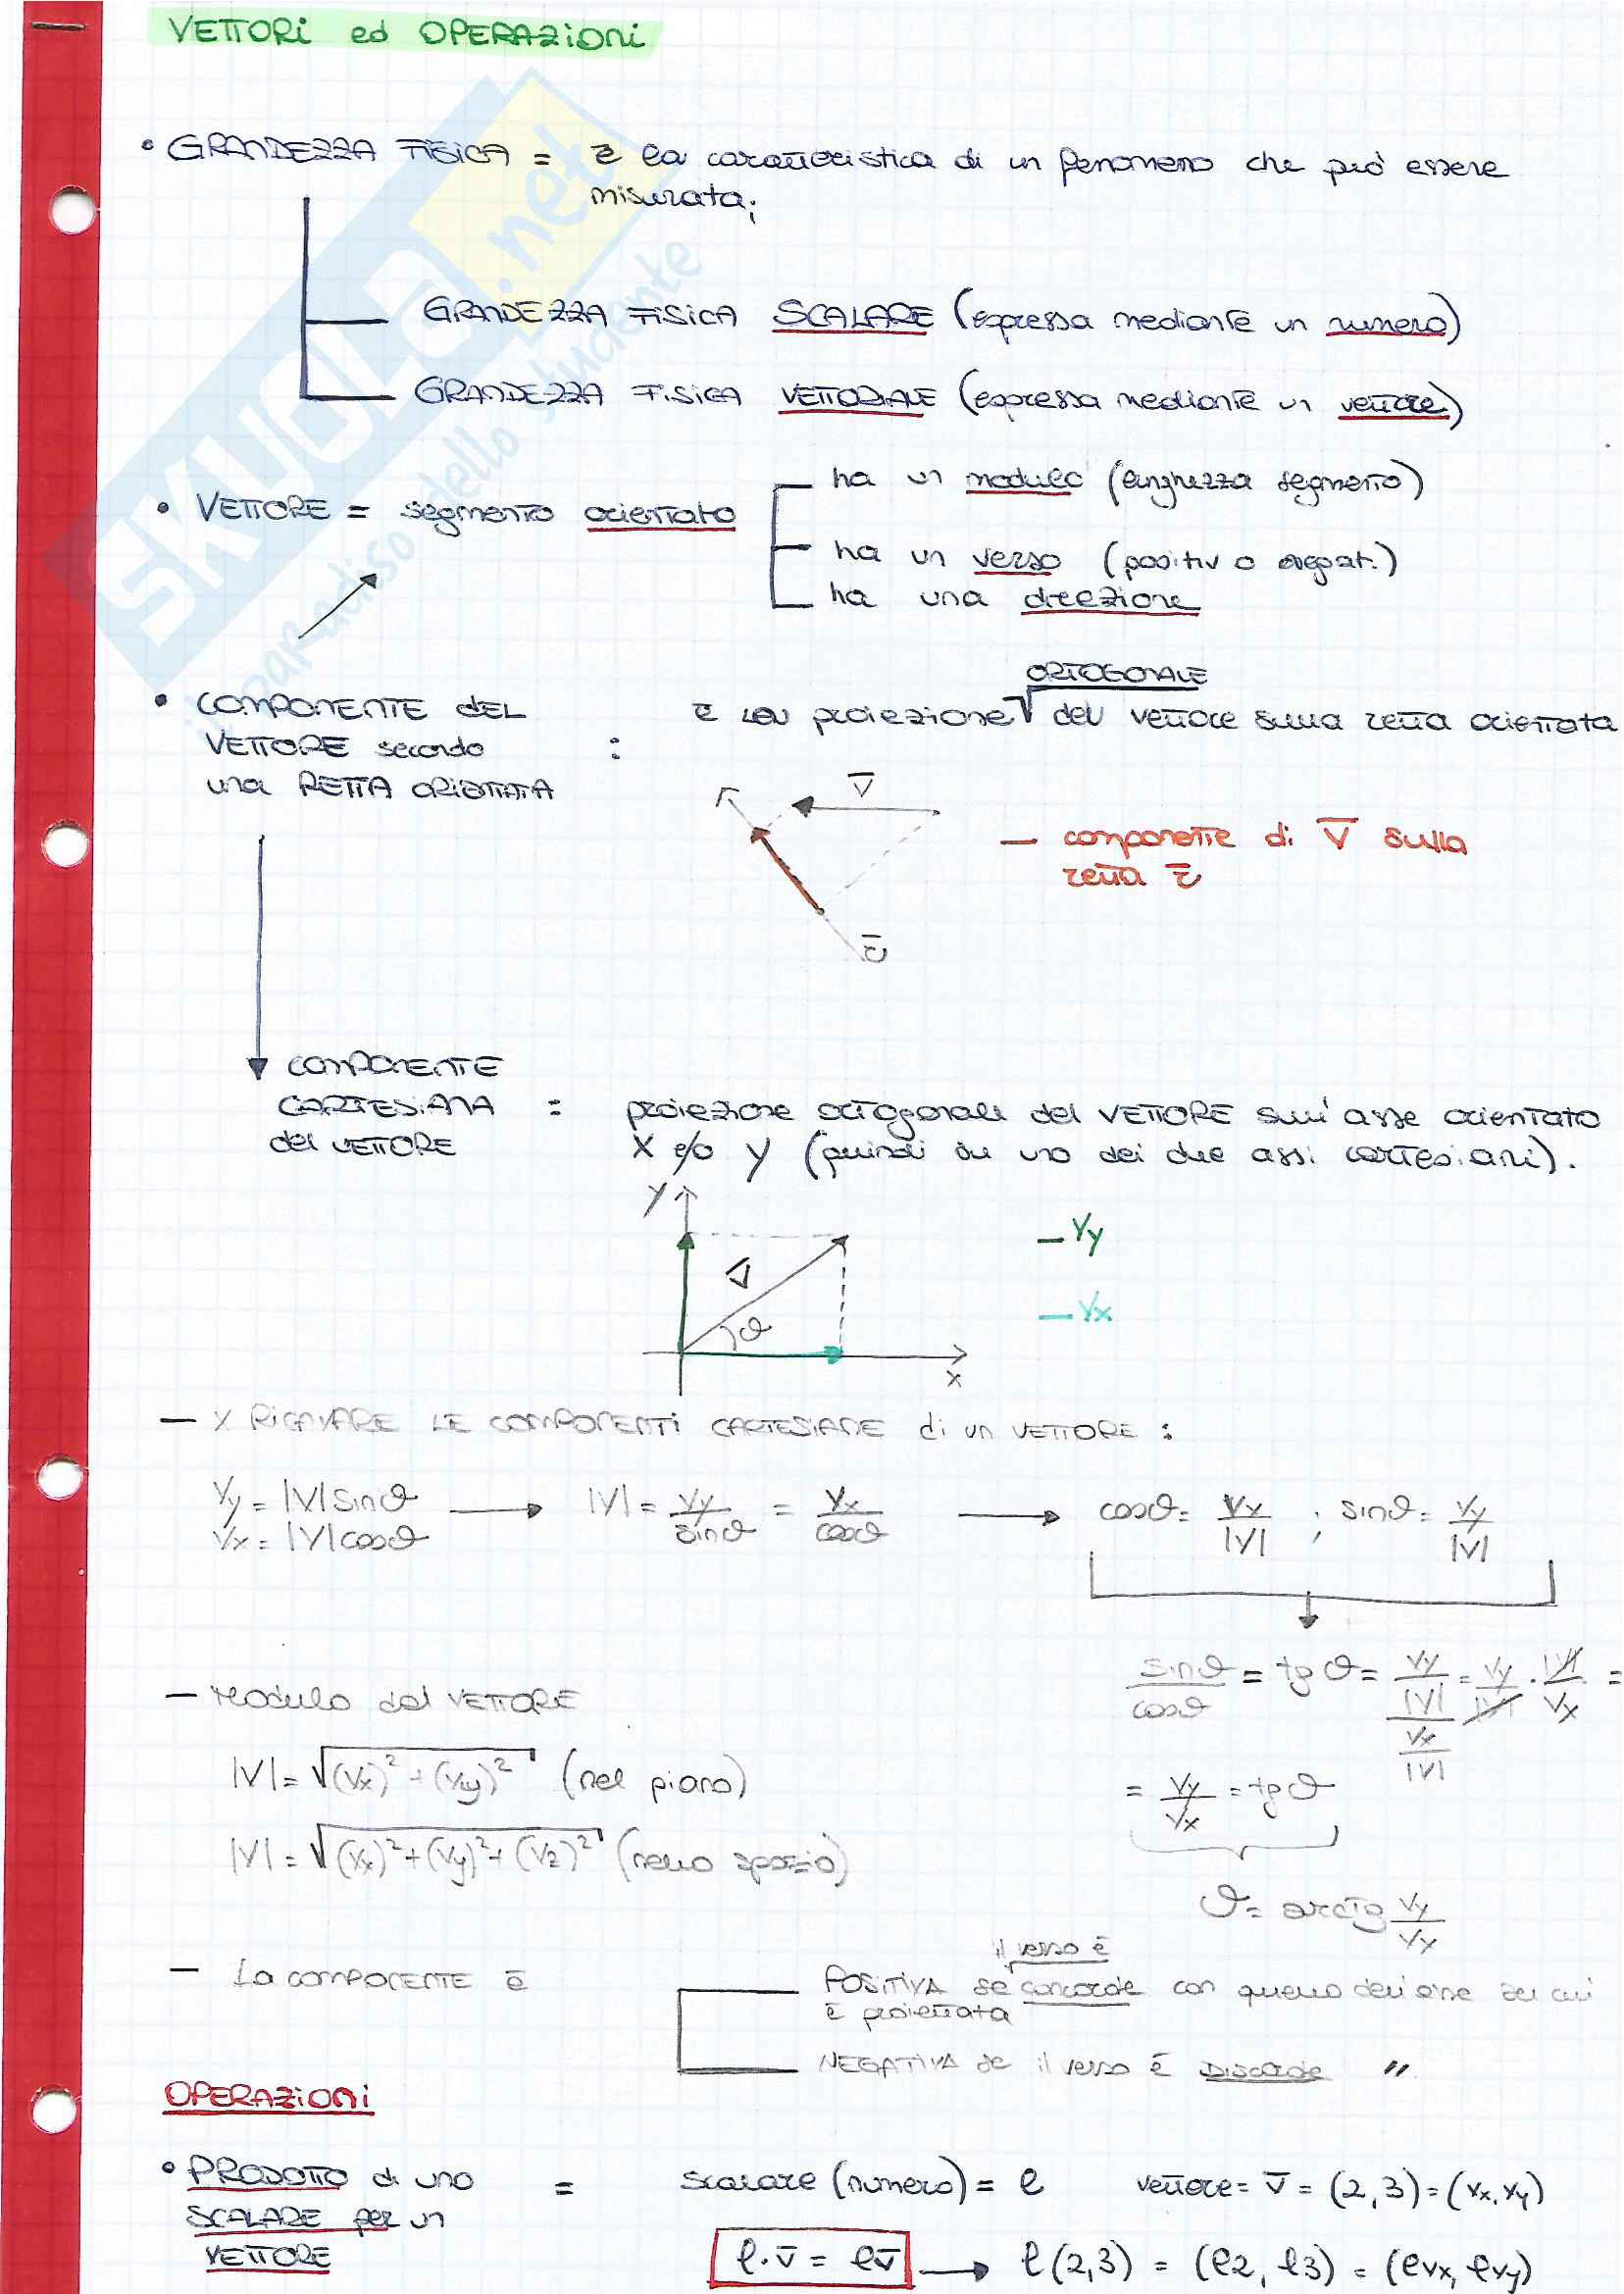 VETTORI ed OPERAZIONI
• GRANDEZZA FISICA = è la caratteristica di un fenomeno che può essere
misurata;
GRANDEZZA FISICA SCALARE (espressa mediante un numero)
GRANDEZZA FISICA VETTORIALE (espressa mediante un vettore)
• VETTORE = segmento orientato
ha un modulo (lunghezza segmento)
ha un verso (positiv o negat.)
ha una direzione
SKUOLA.net
il paradiso dello studente
• COMPONENTE DEL
VETTORE secondo
una RETTA ORIENTATA
:
ORTOGONALE
è la proiezione √ del vettore sulla retta orientata
V̅
— componente di V̅ sulla
retta r̅
r̅
COMPONENTE
CARTESIANA
del VETTORE
=
proiezione ortogonale del VETTORE sull'asse orientato
X e/o Y (quindi su uno dei due assi cartesiani).
Y
V̅
ϑ
x
— Vy
— Vx
— X RICAVARE LE COMPONENTI CARTESIANE di un VETTORE :
Vy = |V| sinϑ
Vx = |V| cosϑ
→ |V| = Vy/sinϑ = Vx/cosϑ → cosϑ = Vx/|V| ; sinϑ = Vy/|V|
sinϑ/cosϑ = tgϑ = (Vy/|V|)/(Vx/|V|) = Vy/|V| · |V|/Vx =
= Vy/Vx = tgϑ
ϑ = arctg Vy/Vx
— Modulo del VETTORE
|V| = √(Vx)²+(Vy)² (nel piano)
|V| = √(Vx)²+(Vy)²+(Vz)² (nello spazio)
— La COMPONENTE è
il verso è
POSITIVA se concorde con quello dell'asse su cui
è proiettata
NEGATIVA se il verso è DISCORDE "
OPERAZIONI
• PRODOTTO di uno
SCALARE per un
VETTORE
= scalare (numero) = l vettore = V̅ = (2,3) = (Vx, Vy)
l · v̅ = lv̅ → l(2,3) = (l2, l3) = (lvx, lvy)